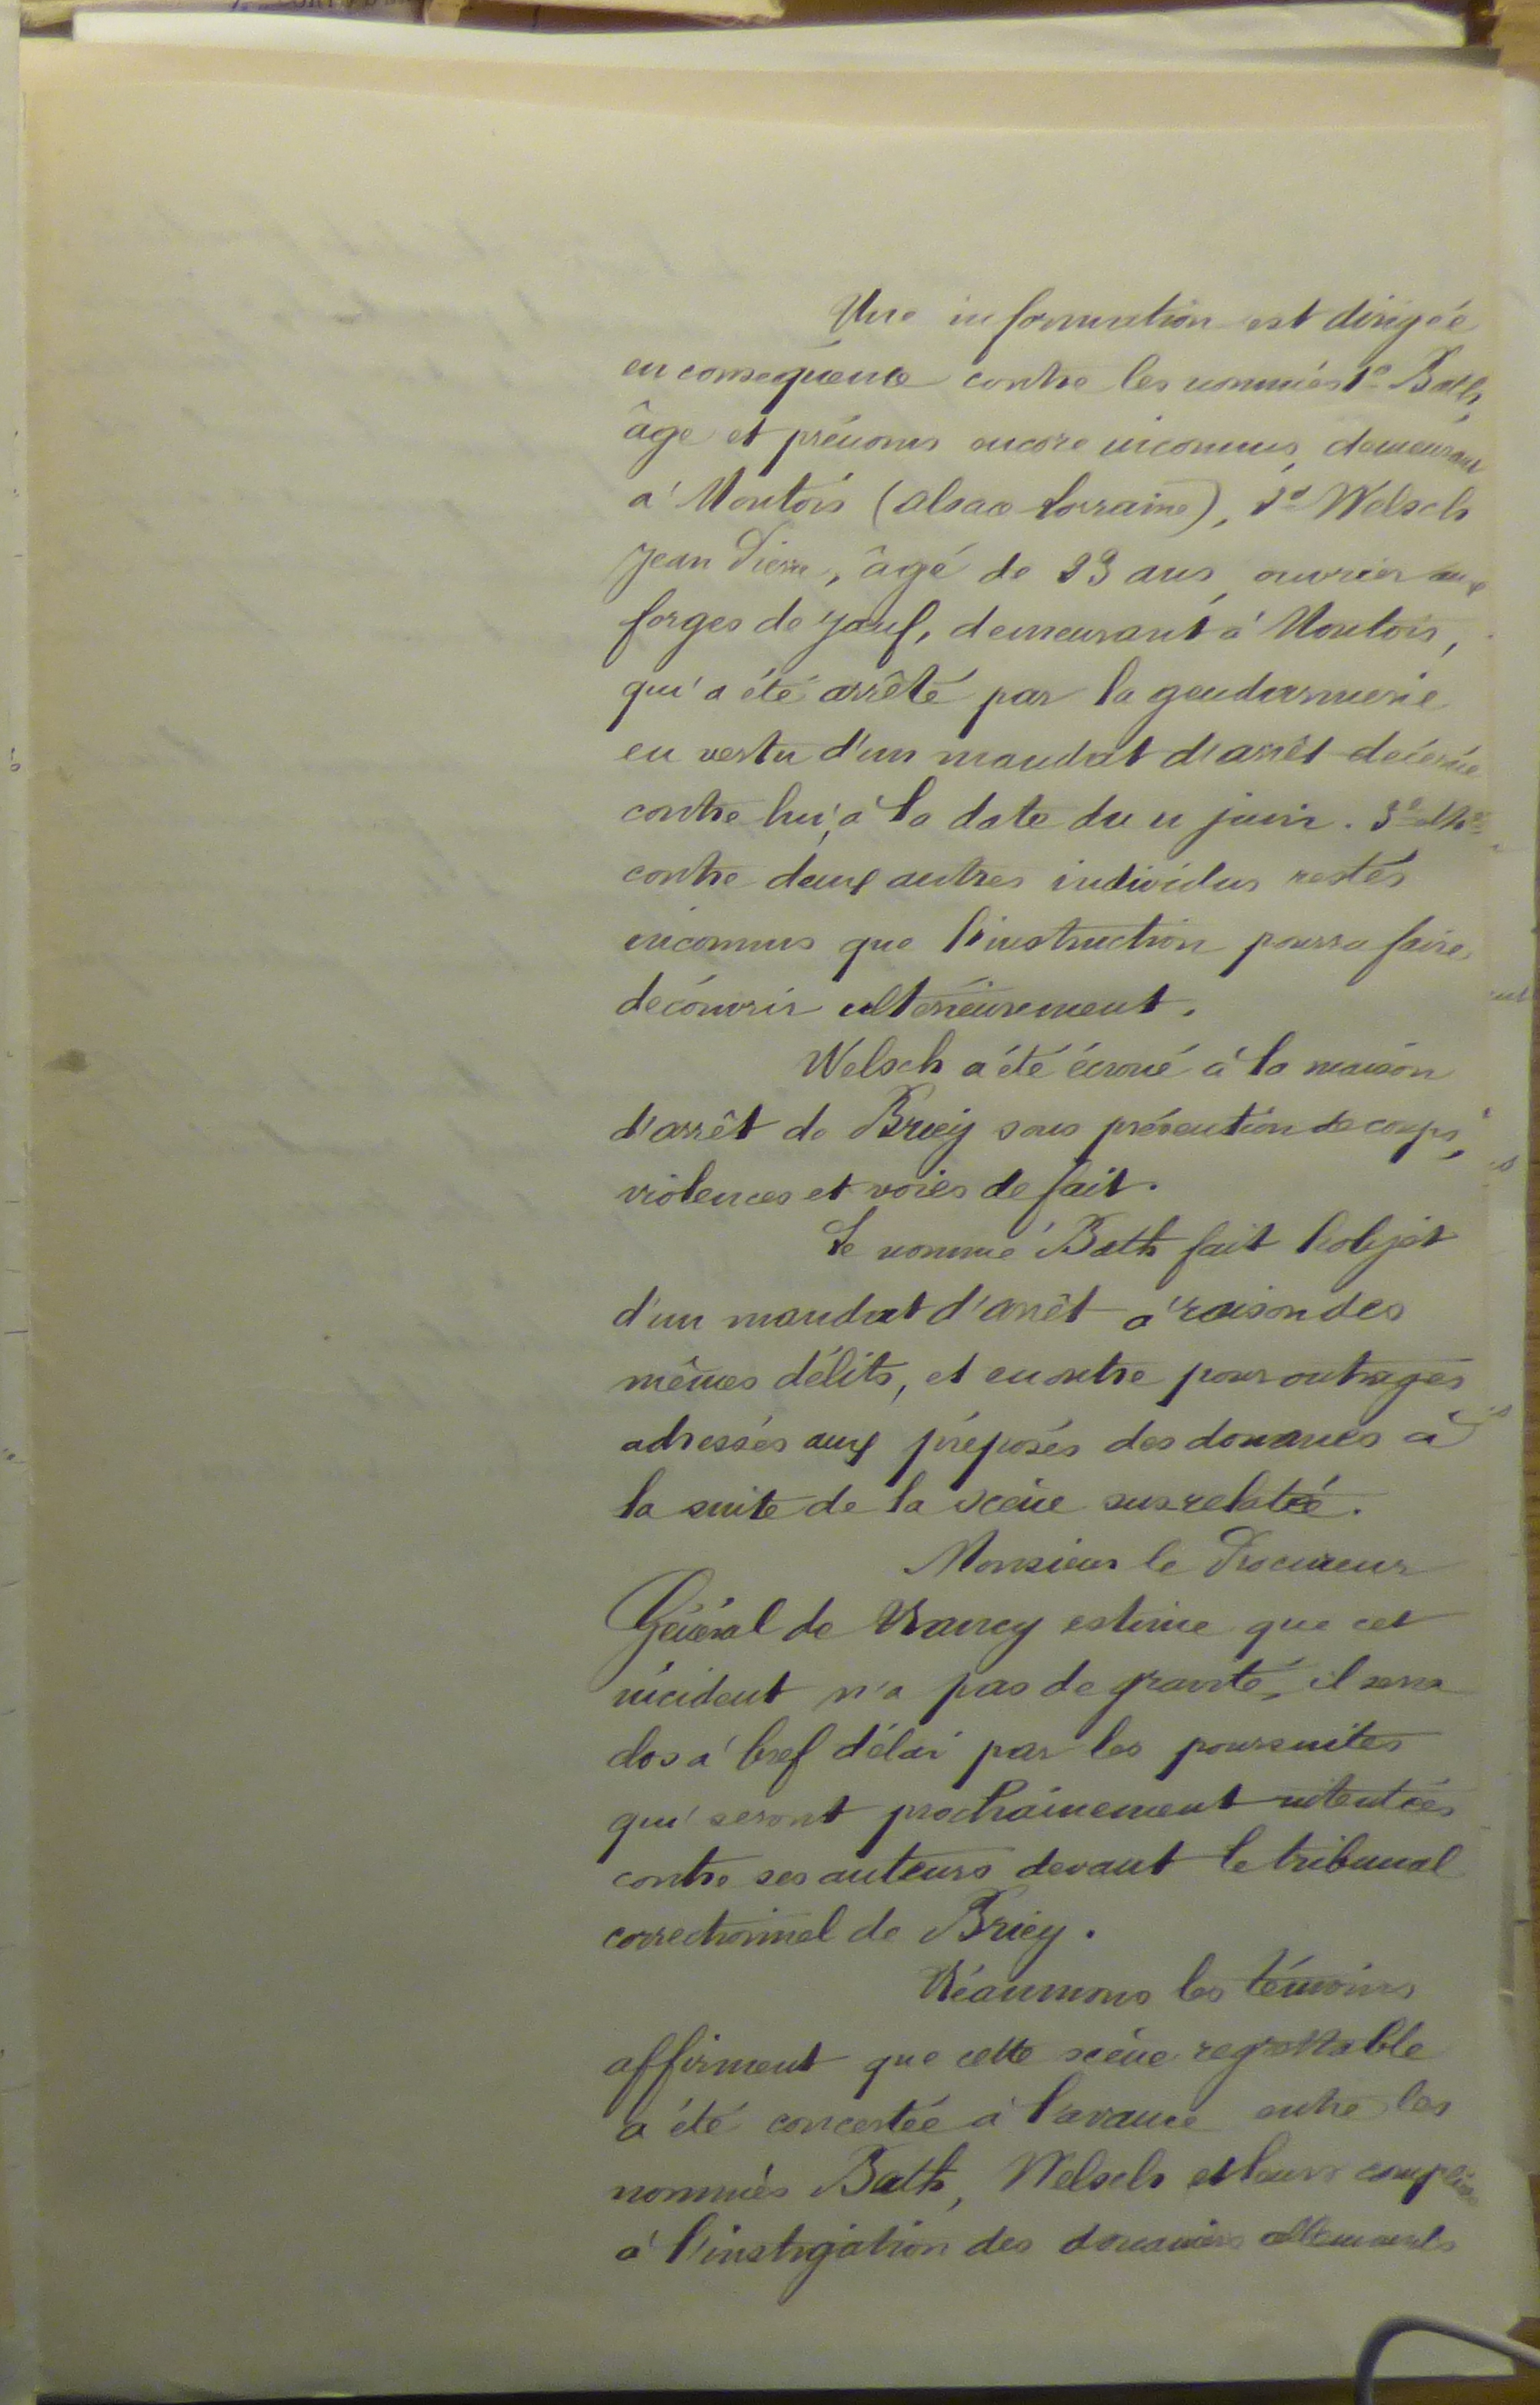 Une information est dirigée
en conséquence contre les nommés 1º Bath,
âge et prénoms encore inconnus, demeurant
à Montois (Alsace Lorraine), 2º Welsch
Jean Pierre, âgé de 23 ans, ouvrier aux
forges de Jœuf, demeurant à Montois,
qui a été arrêté par la gendarmerie
en vertu d'un mandat d'arrêt décerné
contre lui, à la date du 11 juin. 3º et 4º
contre deux autres individus restés
inconnus que l'instruction pourra faire
découvrir ultérieurement.
Welsch a été écroué à la maison
d'arrêt de Briey sous prévention de coups,
violences et voies de fait.
Le nommé Bath fait l'objet
d'un mandat d'arrêt à raison des
mêmes délits, et en outre pour outrages
adressés aux préposés des douanes à
la suite de la scène susrelatée.
Monsieur le Procureur
Général de Nancy estime que cet
incident n'a pas de gravité, il sera
clos à bref délai par les poursuites
qui seront prochainement intentées
contre ses auteurs devant le tribunal
correctionnel de Briey.
Néanmoins les témoins
affirment que cette scène regrettable
a été concertée à l'avance entre les
nommés Bath, Welsch et leurs complices
à l'instigation des douaniers allemands